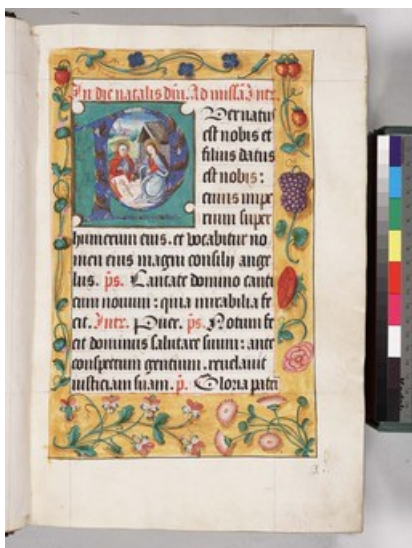 In die natalis dm̄. Ad missā Intr.
Puer natus
est nobis et
filius datus
est nobis:
cuius impe
rium super
humerum eius. et vocabitur no
men eius magni consilij ange
lus. p̄s. Cantate domino canti
cum nouum: quia mirabilia fe
cit. Intr. Puer. p̄s. Notum fe
cit dominus salutare suum: ante
conspectum gentium. reuelauit
iusticiam suam. p̄. Gloria patri